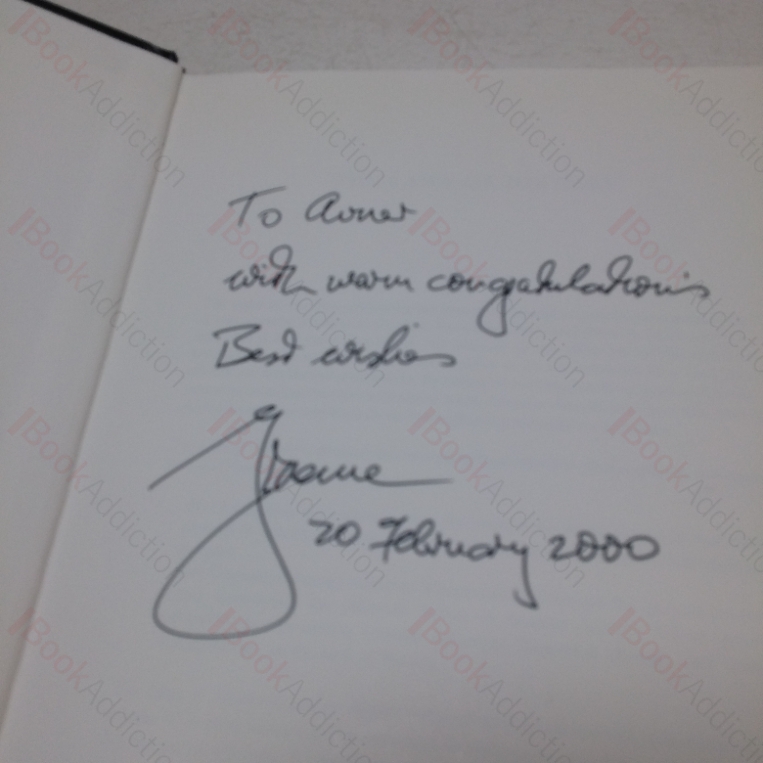 To Avner
with warm congratulations
Best wishes
20 February 2000
BookAddiction